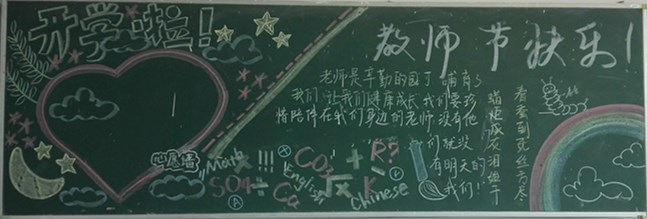 开学啦!
教师节快乐!
老师是辛勤的园丁 哺育了
我们 让我们健康成长 我们要珍
惜陪伴在我们身边的老师 没有他
们就没
有明天的
我们!
春蚕到死丝方尽
蜡炬成灰泪始干
心愿墙
Math
!!!
SO4
÷
CO2
Ca
English
+
√x
R?
K
Chinese
A